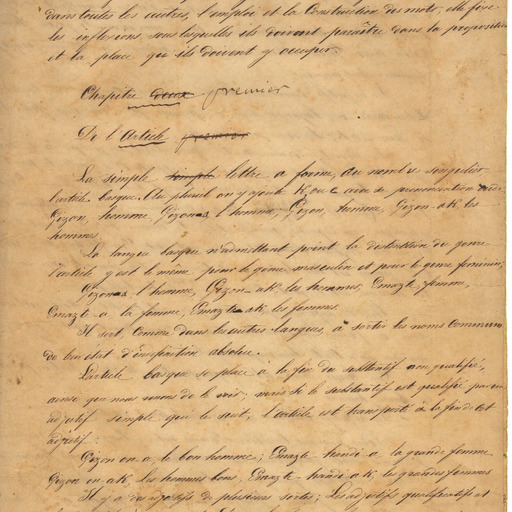 dans toutes les autres, l'emploi et la Construction des mots, elle fixe
les inflexions, sous lesquelles ils doivent paraître dans la proposition
et la place que ils doivent y occuper.
Chapitre deux premier
De l'Article premier
La simple simple lettre a forme, au nombre singulier
l'article basque. Au pluriel on y ajoute K, ou c avec de prononciation
Gizon, homme, Gizon-a l'homme, Gizon, homme, Gizon-ak les
hommes.
La langue basque n'admettant point la distinction du genre
l'article y est le même pour le genre masculin et pour le genre féminin;
Gizon-a l'homme, Gizon-ak, les hommes, Emazte, femme,
Emazte-a, la femme, Emazte-ak, les femmes.
Il sert, comme dans les autres langues, à sortir les noms communs
de leur état d'inflexion absolue.
L'article basque se place à la fin du substantif non qualifié,
ainsi que nous venons de le voir; mais si le substantif est qualifié par un
adjectif simple qui le suit, l'article est transporté à la fin de cet
adjectif:
Gizon on-a, le bon homme; Emazte-handi-a la grande femme
Gizon on-ak les hommes bons, Emazte-handi-ak, les grandes femmes
Il y a des adjectifs de plusieurs sortes; Les adjectifs qualificatifs et